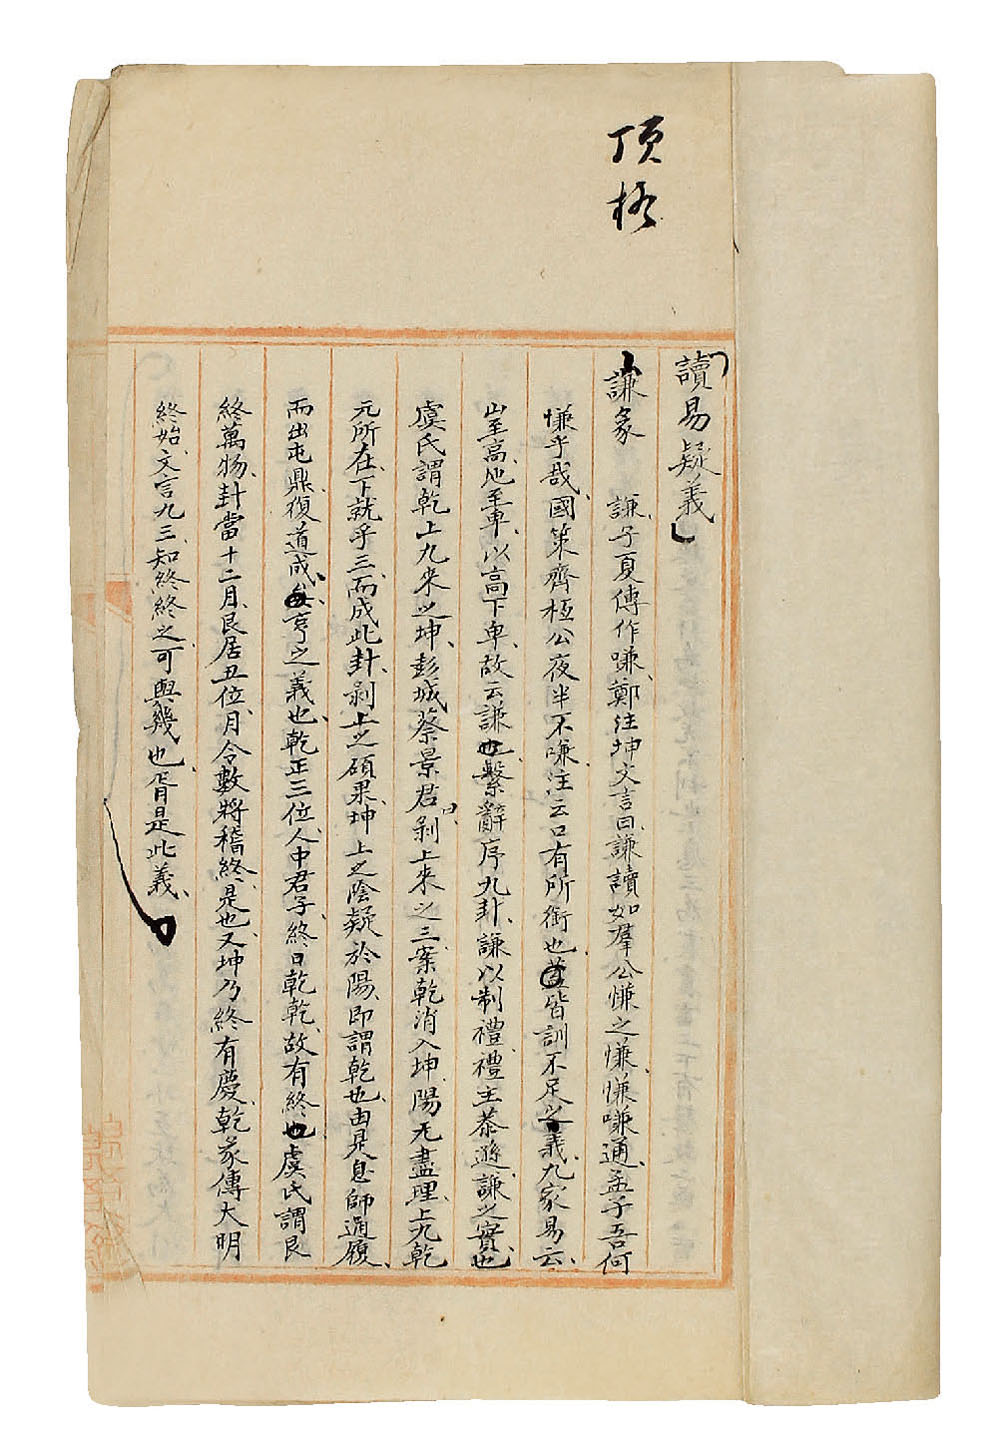 頂格
讀易疑義
謙彖 謙子夏傳作嗛鄭注坤文言曰謙讀如羣公慊之慊慊嗛通孟子吾何
慊乎哉國策齊桓公夜半不嗛注云口有所銜也皆訓不足之義九家易云
山至高地至卑以高下卑故云謙也繫辭序九卦謙以制禮禮主恭遜謙之實也
虞氏謂乾上九來之坤彭城蔡景君剥上來之三案乾消入坤陽无盡理上九乾
元所在下就乎三而成此卦剥上之碩果坤上之陰疑於陽即謂乾也由是息師通履
而出屯鼎復道成亨之義也乾正三位人中君子終日乾乾故有終也虞氏謂艮
終萬物卦當十二月艮居丑位月令數將稽終是也又坤乃終有慶乾彖傳大明
終始文言九三知終終之可與幾也胥是此義